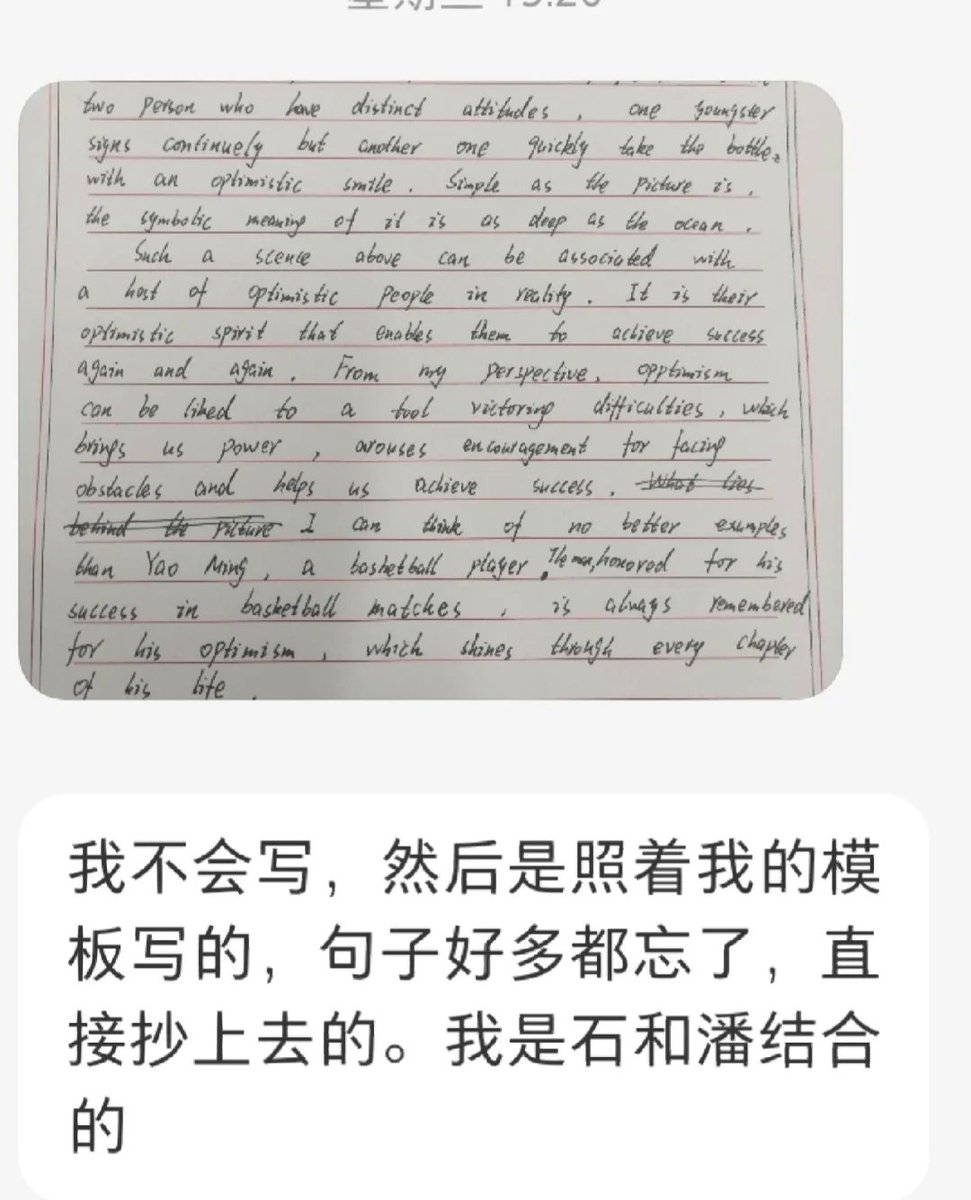 two person who have distinct attitudes , one youngster
signs continuely but another one quickly take the bottle
with an optimistic smile . Simple as the picture is ,
the symbolic meaning of it is as deep as the ocean .
Such a scence above can be associated with
a host of optimistic people in reality . It is their
optimistic spirit that enables them to achieve success
again and again . From my perspective , opptimism
can be liked to a tool victoring difficulties , which
brings us power , arouses encouragement for facing
obstacles and helps us achieve success . What lies
behind the picture I can think of no better examples
than Yao Ming , a basketball player . The man, honored for his
success in basketball matches , is always remembered
for his optimism , which shines through every chapter
of his life .
我不会写，然后是照着我的模
板写的，句子好多都忘了，直
接抄上去的。我是石和潘结合
的